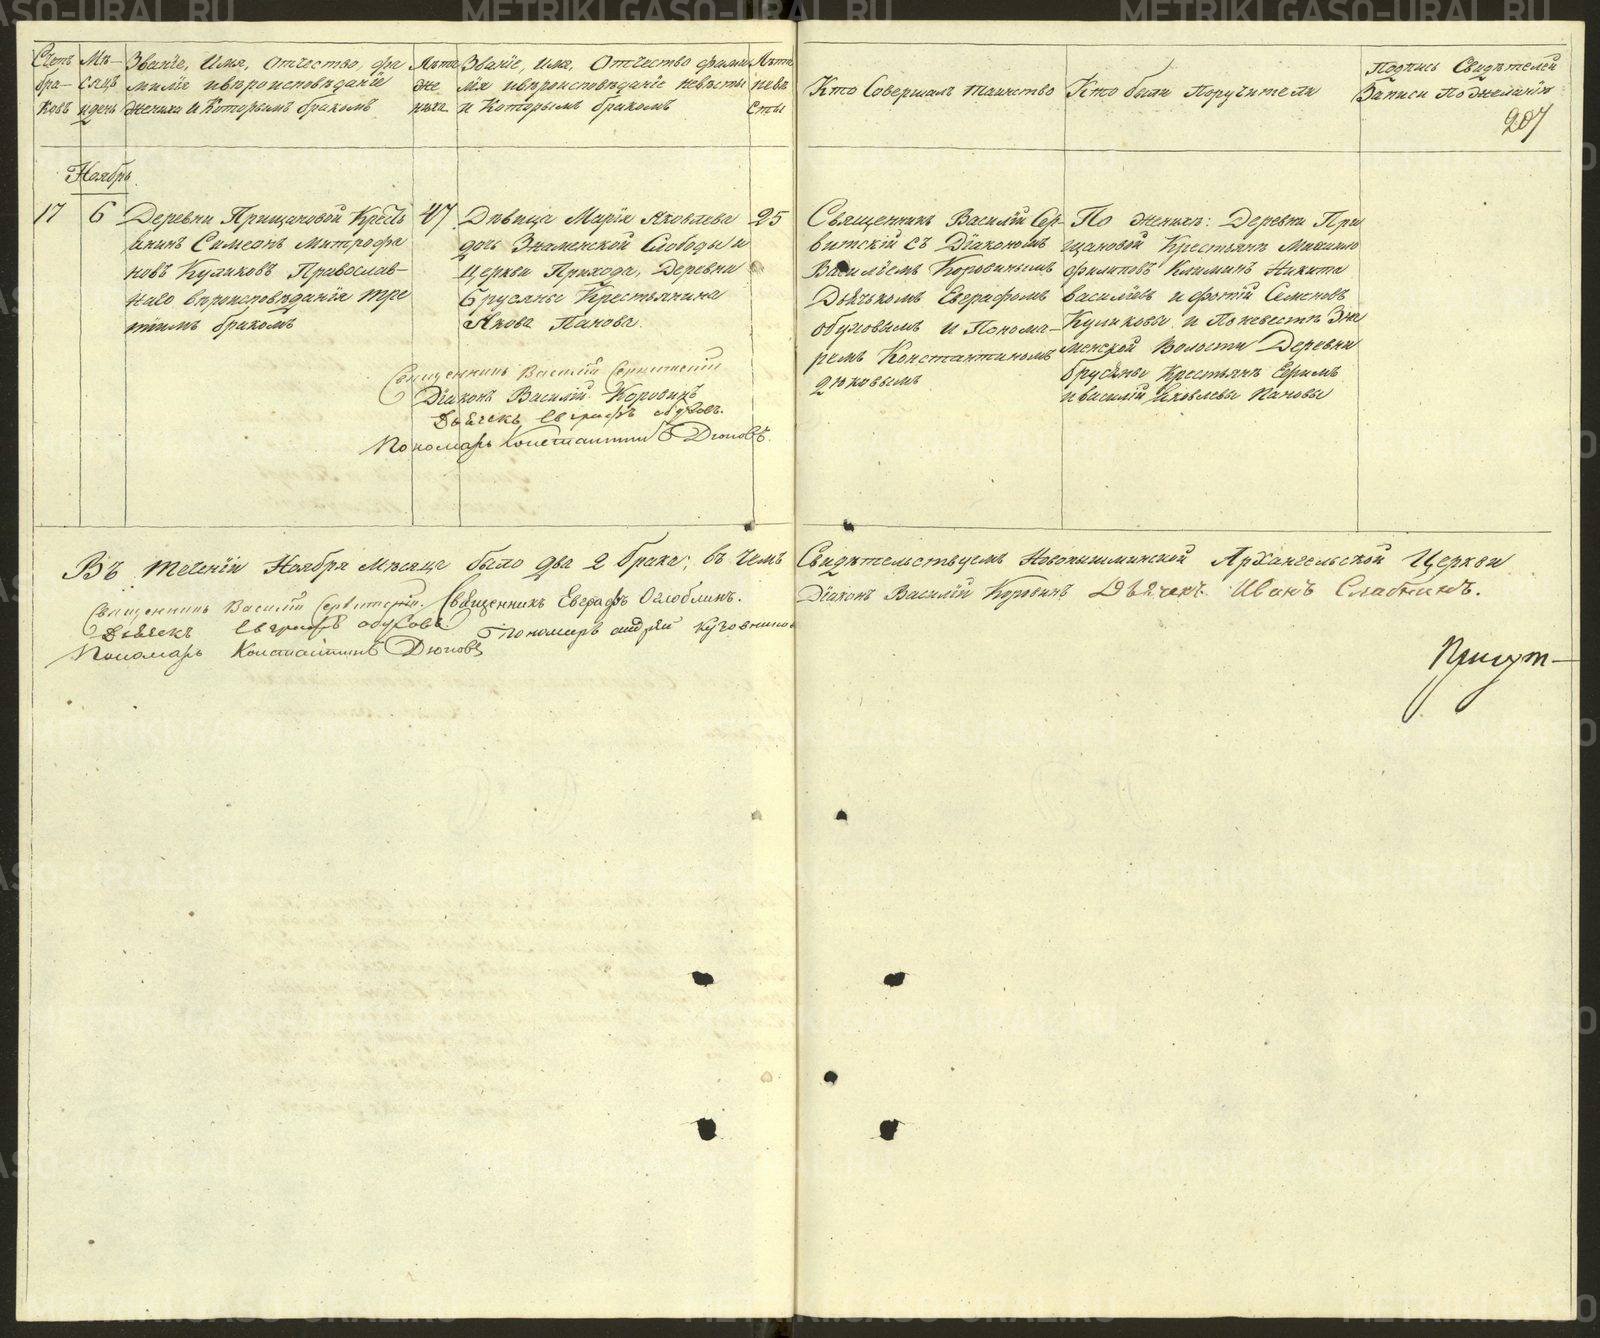 Счетъ бра-ковъ
Мѣ-сяцъ и день
Званіе, Имя, отчество, фа
миліе и вѣроисповѣданіе
жениха и Которымъ бракомъ
Лѣта же ниха
Званіе, имя, Отчество фами
лія и вѣроисповѣданіе невѣсты
и Которымъ бракомъ
Лѣта невѣ сты
Кто Совершалъ таинство
Кто были Поручители
Подпись Свидѣтелей
Записи По желанію
207
Ноябрь
17
6
Деревни Прищановой Кресть
янинъ Симеонъ Митрофа
новъ Куликовъ Православ-
наго вѣроисповѣданія тре
тіимъ бракомъ
47
Дѣвица Марія Яковлева
дочь Знаменской Слободы и
Церкви Прихода, Деревни
Брусяны Крестьянина
Якова Панова
25
Священникъ Василій Сер-
витскій съ Діакономъ
Василіемъ Коровинымъ
Дьячькомъ Евграфомъ
Обуховымъ и Понома-
ремъ Константиномъ
Дюковымъ
По женихѣ: Деревни При
щановой Крестьянъ Михаило
Филиповъ Климинъ Никита
Василіевъ и Фотій Семеновъ
Куликовы и По невестѣ Зна
менской Волости Деревни
Брусяны Крестьянъ Ефимъ
и Василій Яковлевы Пановы
Священникъ Василій Сервитскій
Діаконъ Василій Коровинъ
Дьячекъ Евграфъ Обуховъ.
Пономарь Константинъ Дюковъ.
Въ теченіи Ноября Мѣсяца было два 2 брака; въ чемъ Свидѣтельствуемъ Новопышминской Архангельской Церкви
Священникъ Василій Сервитскій. Священникъ Евграфъ Оглоблинъ. Діаконъ Василій Коровинъ Дьячекъ Иванъ Слабнинъ.
Дьячекъ Евграфъ Обуховъ Пономарь Андрей Кузовниковъ
Пономарь Константинъ Дюковъ
METRIKI.GASO-URAL.RU